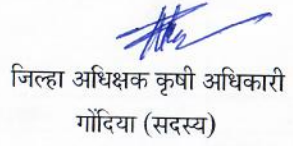 जिल्हा अधिक्षक कृषी अधिकारी
गोंदिया (सदस्य)